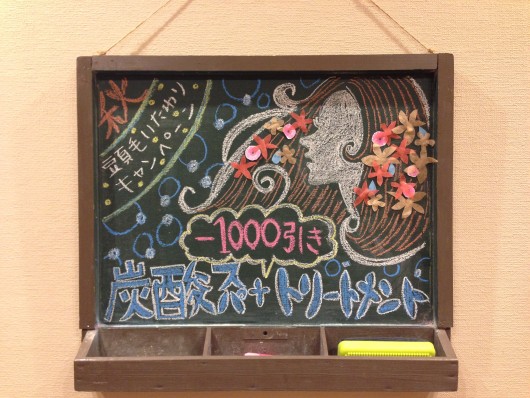 秋
頭もいたわり
キャンペーン
-1000引き
炭酸スパ+トリートメント